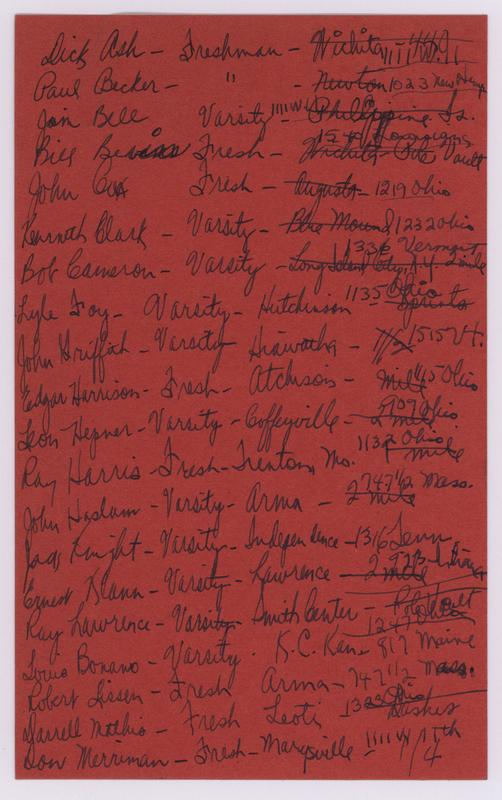 Dick Ash - Freshman - Wichita 1111 W. 11
Paul Becker - " - Newton 1023 New Hamp
Jim Bell Varsity 1111 W 11 Philippine Is.
Bill Fresh - Wichita Pole Vault
John Cox Fresh - Augusta - 1219 Ohio
Kenneth Clark - Varsity - Blue Mound 1232 Ohio
1336 Vermont
Bob Cameron - Varsity - Long Island City, N.Y. 2 mile
1135 Ohio
Lyle Foy - Varsity - Hutchinson - Sprints
John Griffith - Varsity Hiawatha - 1/2 1515 Vt.
Edgar Harrison - Fresh - Atchison - Mile Ohio
Leon Hepner - Varsity - Coffeyville - 2 mile Ohio
1132 Ohio
Ray Harris - Fresh - Trenton, Mo. mile
John Haslam - Varsity - Arma - 2 mile 747 1/2 Mass.
Jack Knight - Varsity - Independence - 1316 Tenn.
Ernest Klann - Varsity - Lawrence - 2 mile
Ray Lawrence - Varsity - Smith Center - Pole Vault
Louis Bonano - Varsity - K.C. Kan - 817 Maine
Robert Lissen - Fresh Arma - 747 1/2 Mass.
Darrell Matthio - Fresh Leoti Dashes
Don Merriman - Fresh - Marysville - 1111 W 11th
1/4